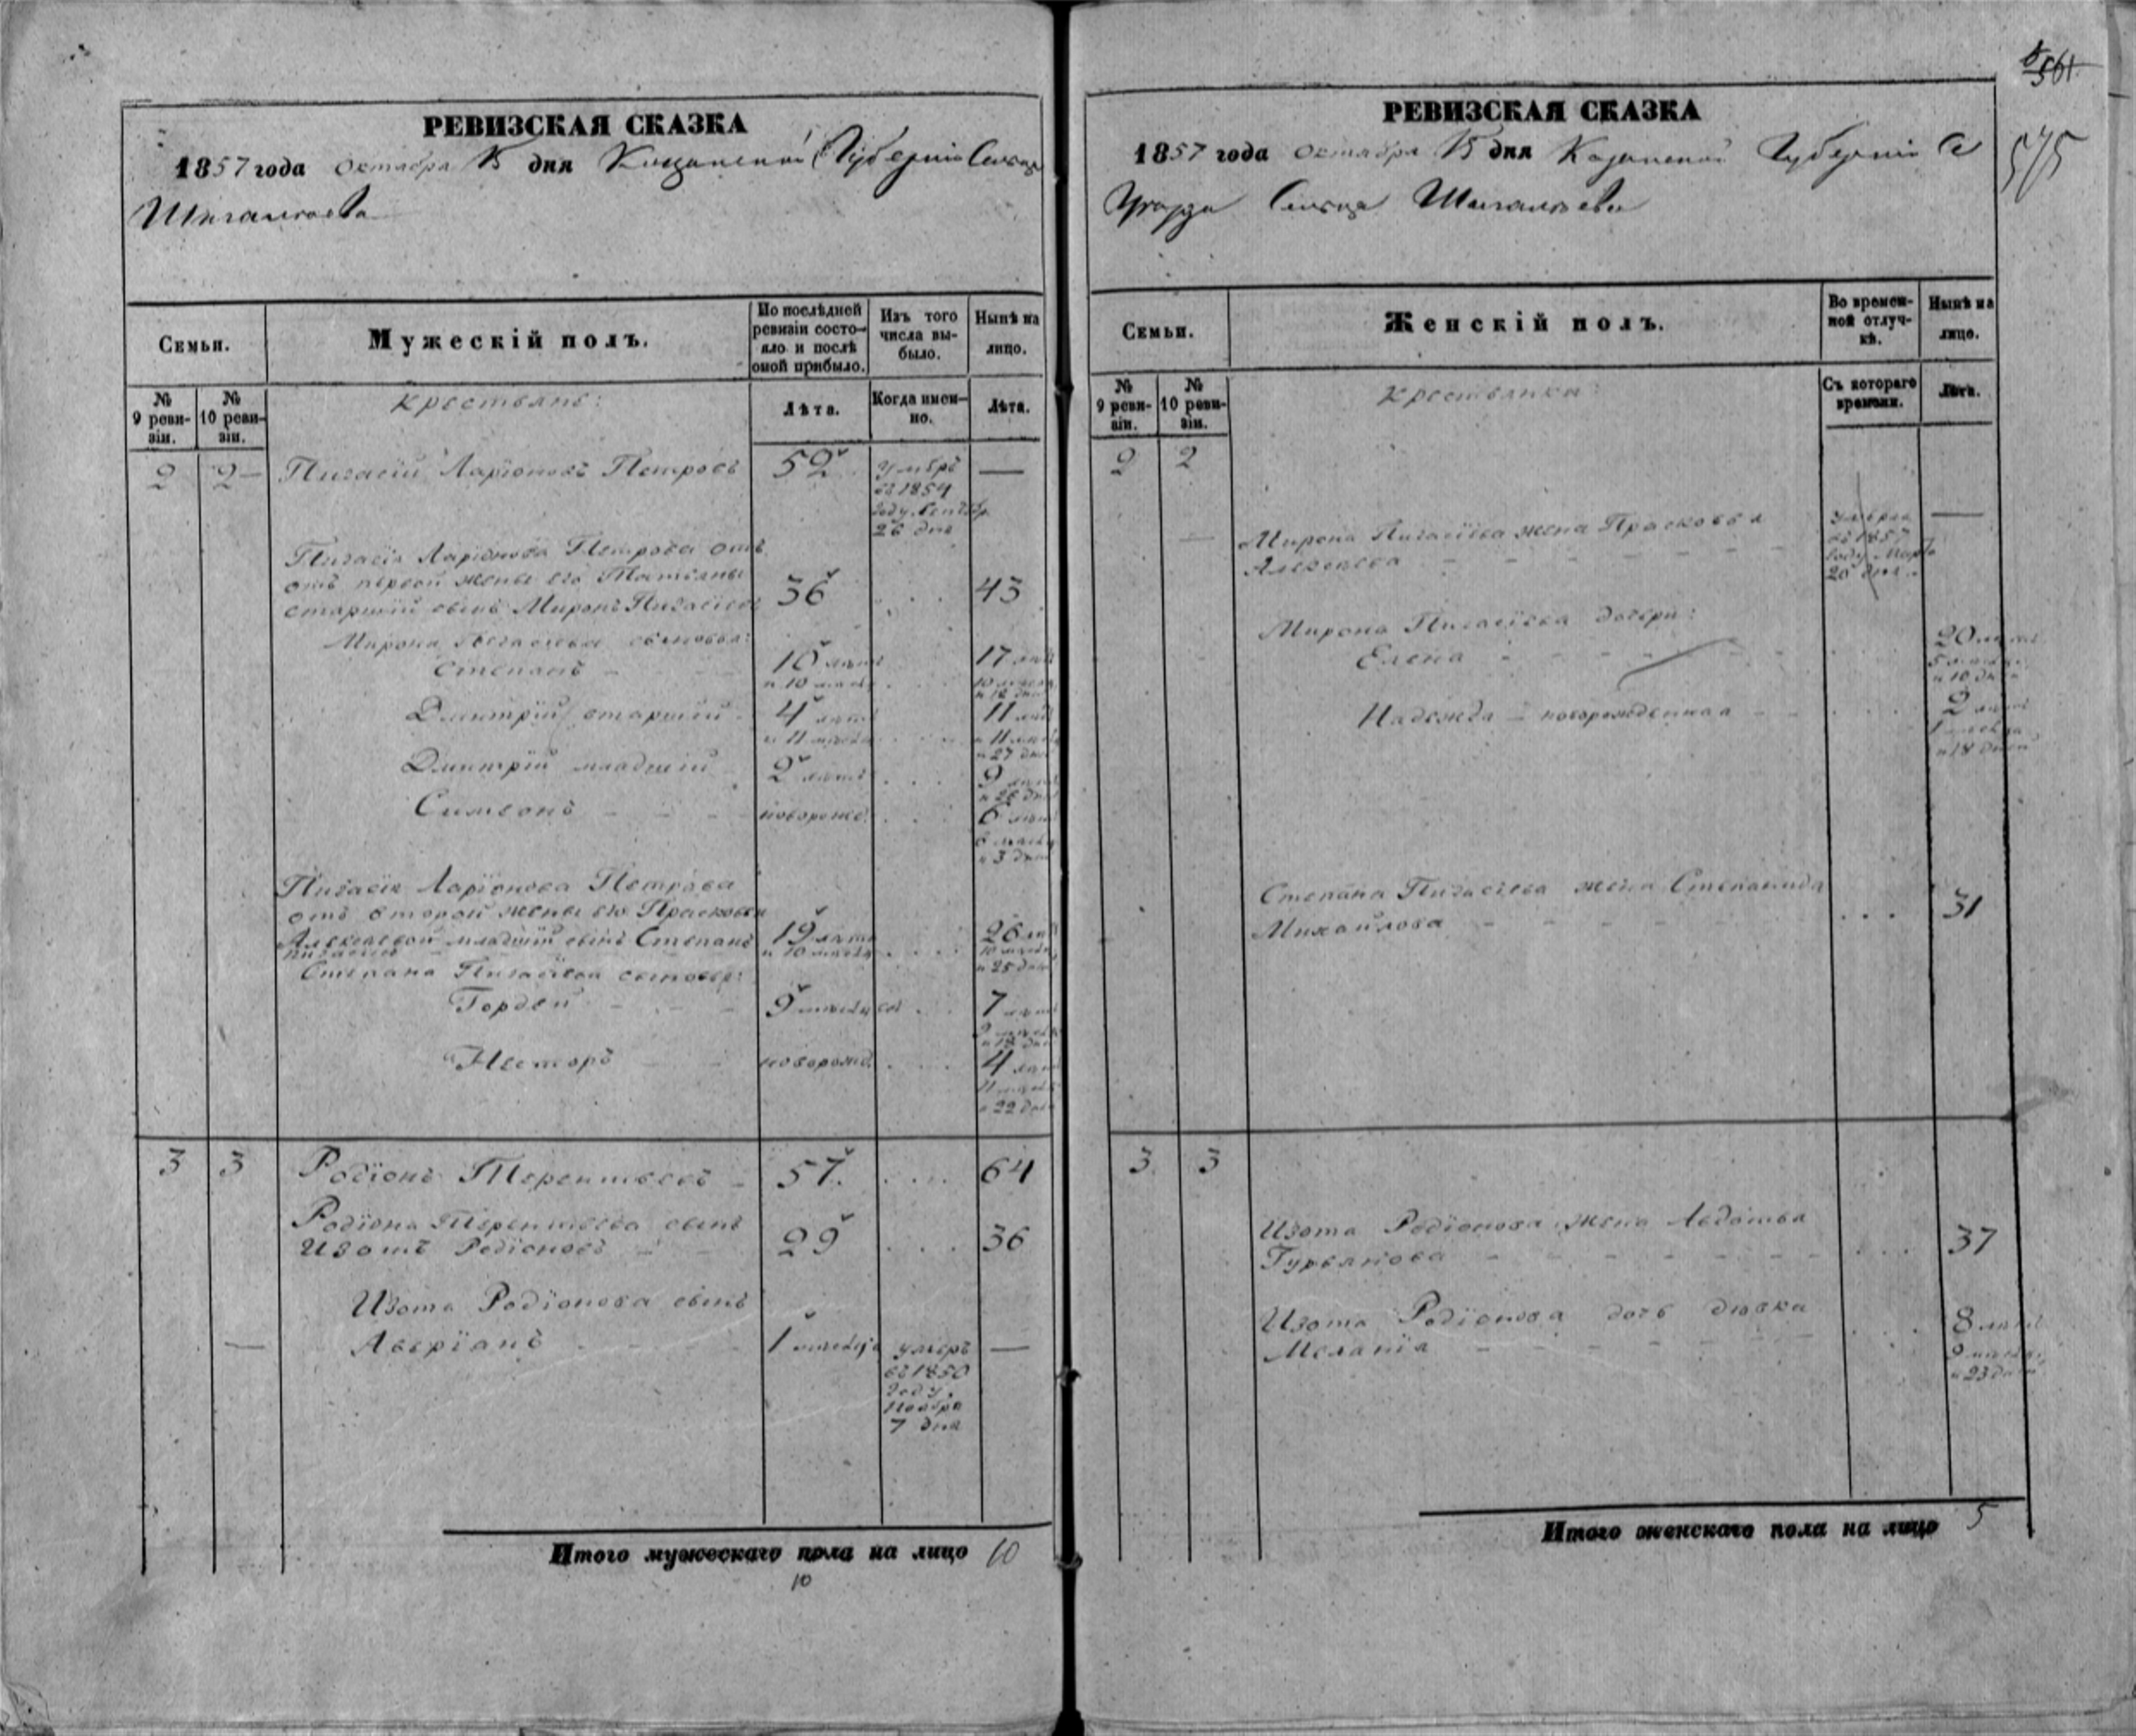 РЕВИЗСКАЯ СКАЗКА
1857 года Октября 15 дня Казанской Губерніи Сельца
Шигалеева
Семьи.
Мужескій полъ.
По послѣдней ревизіи состояло и послѣ оной прибыло.
Изъ того числа выбыло.
Нынѣ на лицо.
№ 9 ревизіи.
№ 10 ревизіи.
Крестьяне:
Лѣта.
Когда именно.
Лѣта.
2 2 Пигасій Ларіоновъ Петровъ 52 умеръ —
въ 1854
году Сентябр.
26 дня
Пигасія Ларіонова Петрова отъ
отъ первой жены его Татьяны
старшій сынъ Миронъ Пигасіевъ 36 . . . 43
Мирона Пигасіева сыновья:
Степанъ - 10 лѣтъ 17 лѣтъ
и 10 месяц. . . 10 месяц.
и 12 дней
Дмитрій старшій - 4 лѣтъ 11 лѣтъ
и 11 месяц. . . . и 11 месяц.
и 27 дней
Дмитрій младшій 2 лѣтъ . . . 9 лѣтъ
и 26 дней
Симеонъ - - - новорожд. . . . 6 лѣтъ
6 месяц.
и 3 дня
Пигасія Ларіонова Петрова
отъ второй жены его Прасковьи
Алексеевой младшій сынъ Степанъ 19 лѣтъ 26 лѣтъ
Пигасіевъ и 10 месяц. . . . 10 месяц.
и 25 дней
Степана Пигасіева сыновья:
Гордей - - - 9 месяцов . . 7 лѣтъ
9 месяц.
и 18 дней
Несторъ - - новорожд. . . . 4 лѣтъ
11 месяц.
и 22 дня
3 3 Родіонъ Терентьевъ - 57. . . . . 64
Родіона Терентьева сынъ
Изотъ Родіоновъ - - 29 . . . 36
Изота Родіонова сынъ
— Аверіанъ - - 1 месяца умеръ —
въ 1850
году.
Ноября
7 дня
Итого мужескаго пола на лицо 10
10
8
561
575
РЕВИЗСКАЯ СКАЗКА
1857 года Октября 15 дня Казанской Губерніи
Уѣзда Сельца Шигалеева
Семьи.
Женскій полъ.
Во временной отлучкѣ.
Нынѣ на лицо.
№ 9 ревизіи.
№ 10 ревизіи.
Крестьянки:
Съ котораго времени.
Лѣта.
2 2
— Мирона Пигасіева жена Прасковья умерла —
Алексеева - - - - - - въ 1857
году Марта
20 дня
Мирона Пигасіева дочери:
Елена - - - - - 20 лѣтъ
5 месяц.
и 10 дней
Надежда - новорожденная - - . . . 2 лѣтъ
1 месяца
и 18 дней
Степана Пигасіева жена Степанида
Михайлова - - - - - - . . . 31
3 3
Изота Родіонова жена Авдотья
Гурьянова - - - - - - . . . 37
Изота Родіонова дочь девка
Меланія - - - - - . . . 8 лѣтъ
9 месяц.
и 23 дней
Итого женскаго пола на лицо 5